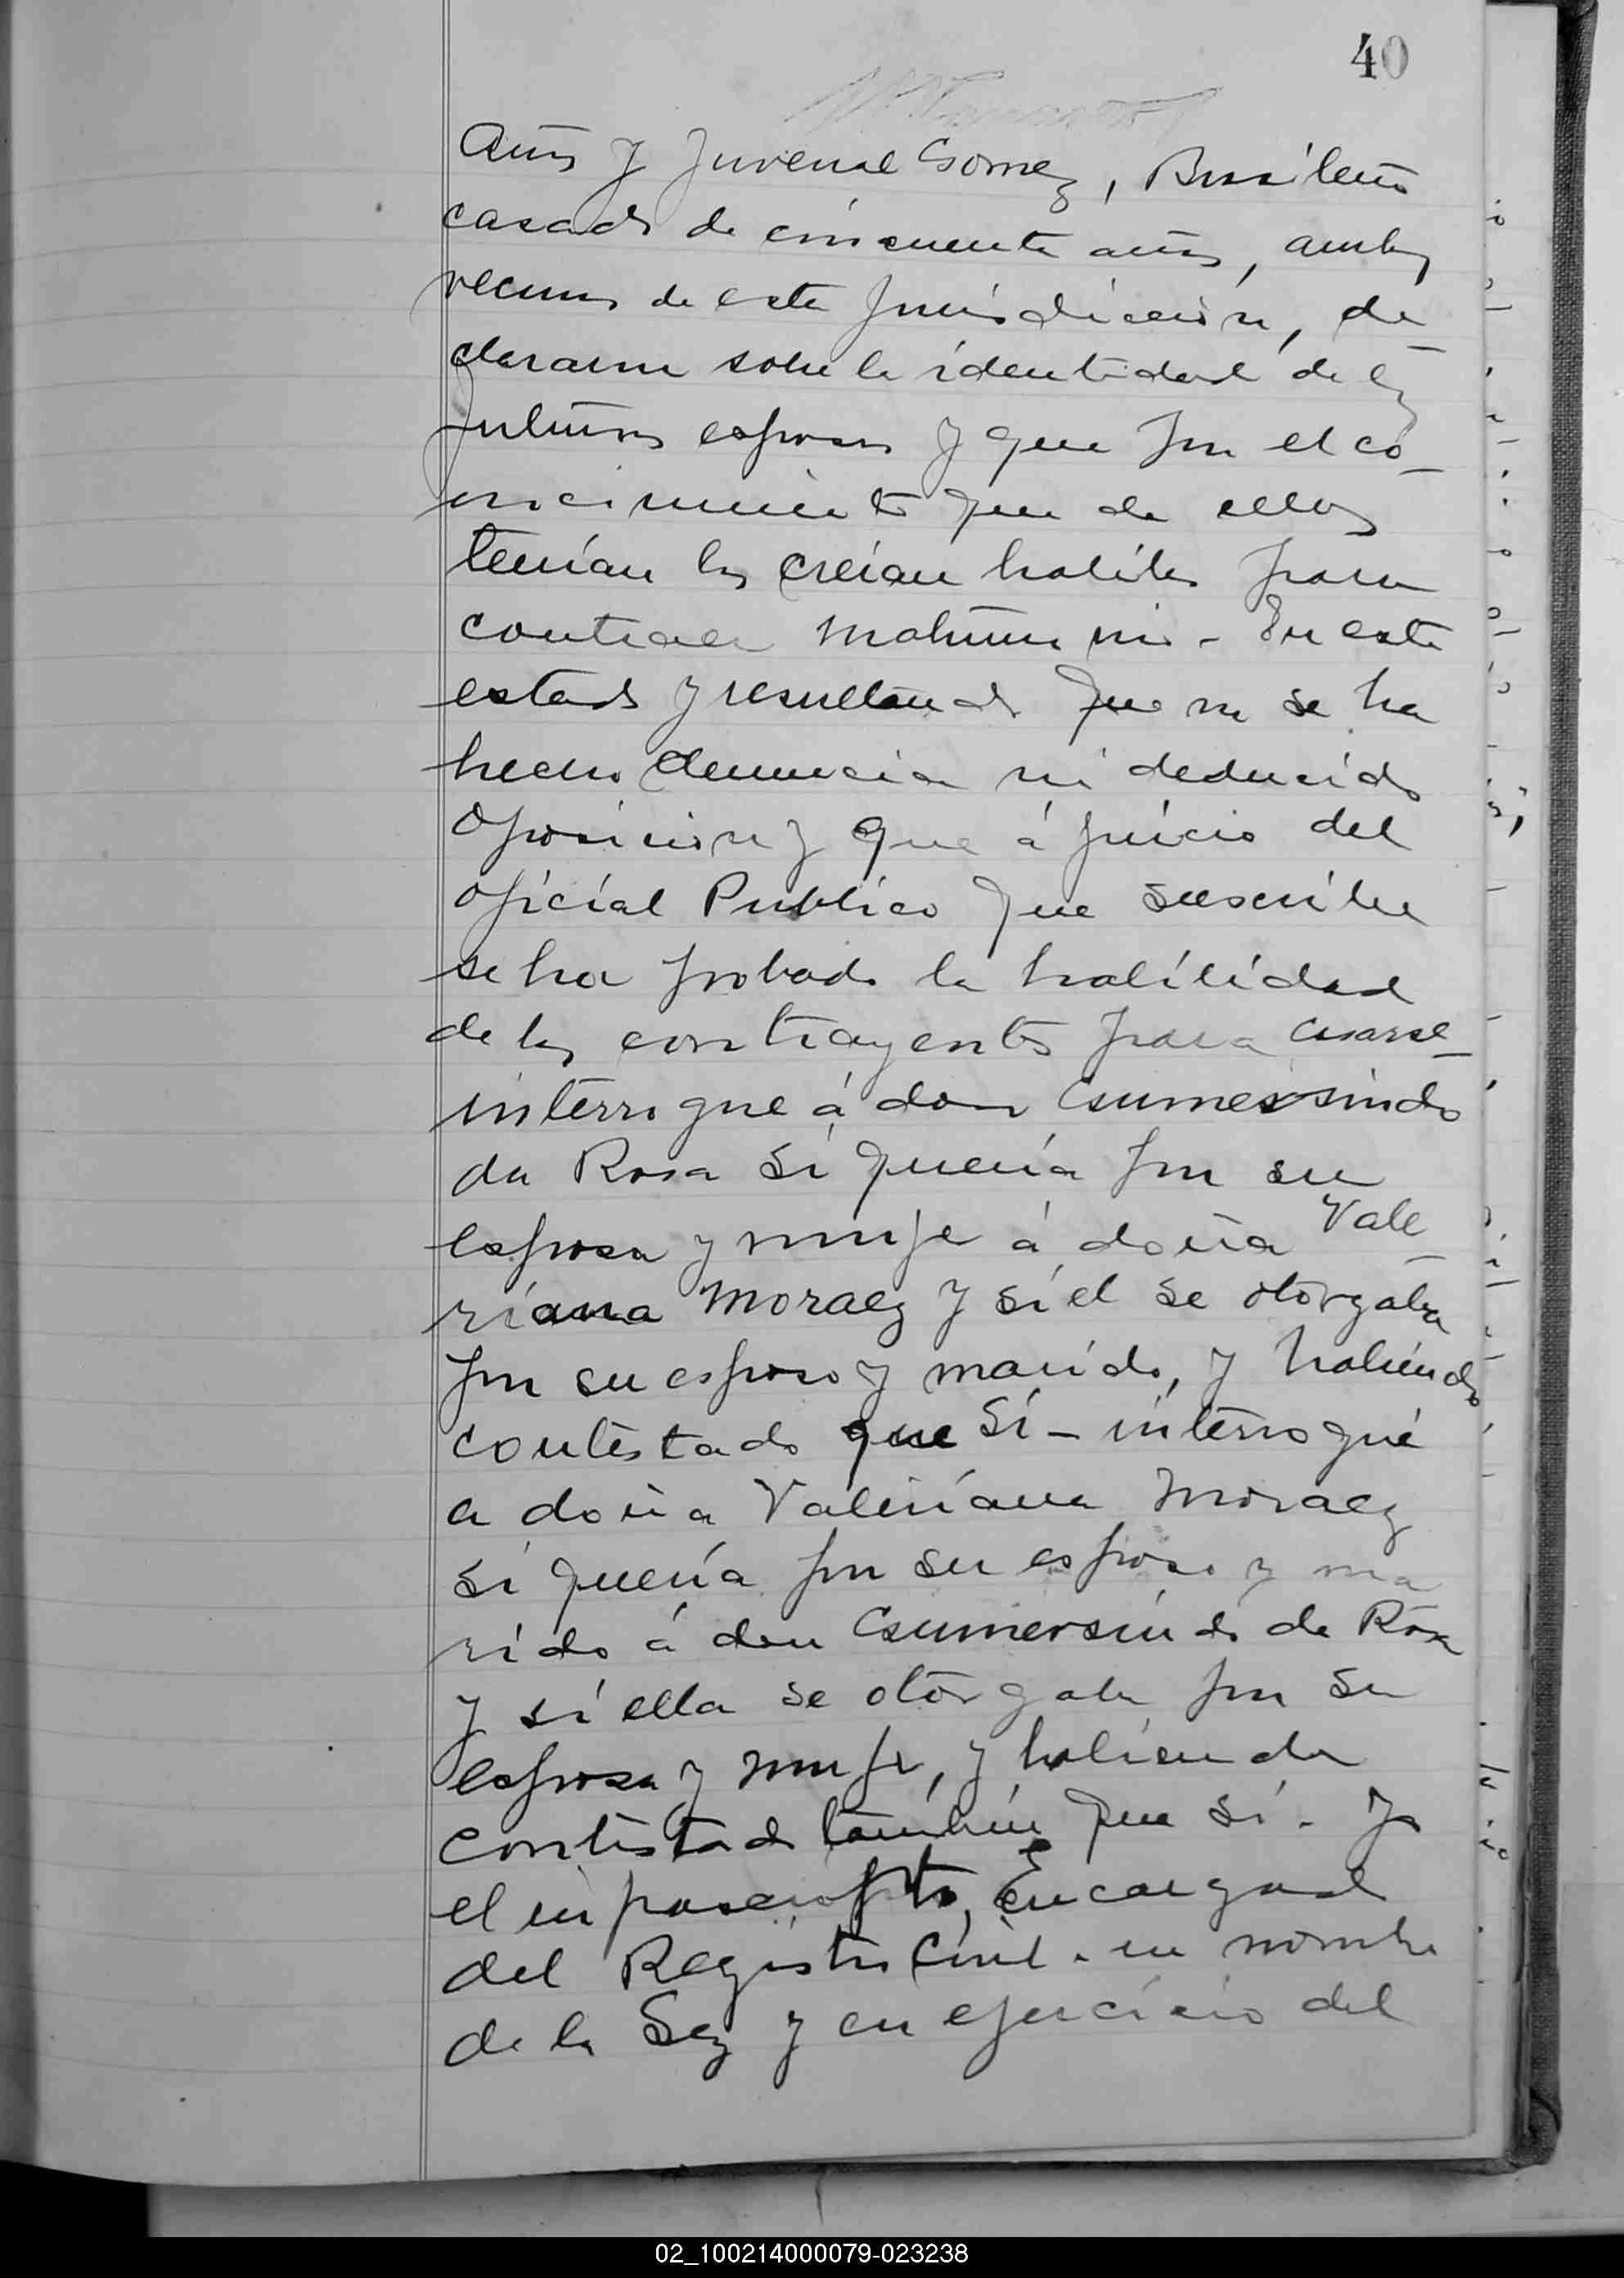 40
años y Juvenal Gomez, Brasileño
casado de cincuenta años, ambos
vecinos de esta Jurisdicción, de-
clararon sobre la identidad de los
futuros esposos y que por el co-
nocimiento que de ellos
tenían los creían habiles para
contraer matrimonio - En este
estado y resultando que no se ha
hecho denuncia ni deducido
oposicion y que á juicio del
oficial Publico que suscribe
se ha probado la habilidad
de los contrayentes para casarse_
interrogue á don Gumersindo
da Rosa si queria por su
esposa y mujer á doña Vale-
riana Moraez y si el se otorgaba
por su esposo y marido, y habiendo
contestado que Si - interrogué
a doña Valeriana Moraez
si quería por su esposo y ma
rido á don Gumersindo da Rosa
y si ella se otorgaba por su
esposa y mujer, y habiendo
contestado también que si. Yo
el infrascripto, Encargado
del Registro Civil - en nombre
de la Ley y en ejercicio del
02_100214000079-023238